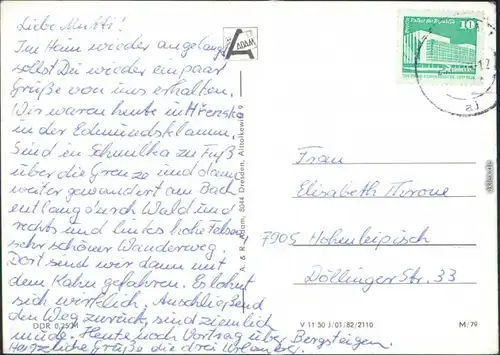 Liebe Mutti!
Im Heim wieder angelangt
sollst Du wieder ein paar
Grüße von uns erhalten.
Wir waren heute in Hřensko
in der Edmundsklamm.
Sind ein Schmilka zu Fuß
über die Grenze und dann
weiter gewandert am Bach
entlang durch Wald und
rechts und links hohe Felsen
sehr schöner Wanderweg.
Dort sind wir dann mit
dem Kahn gefahren. Es lohnt
sich wirklich. Anschließend
den Weg zurück, sind ziemlich
müde. Heute noch Vortrag über Bergsteigen.
Herzliche Grüße die drei
ADAM
A. & R. Adam, 8044 Dresden, Alttolkewitz 9
10
Frau
Elisabeth Throne
7905 Hohenleipisch
Döllinger Str. 33
DDR 0,25 M
V 11 50 J/01/82/2110
M/79